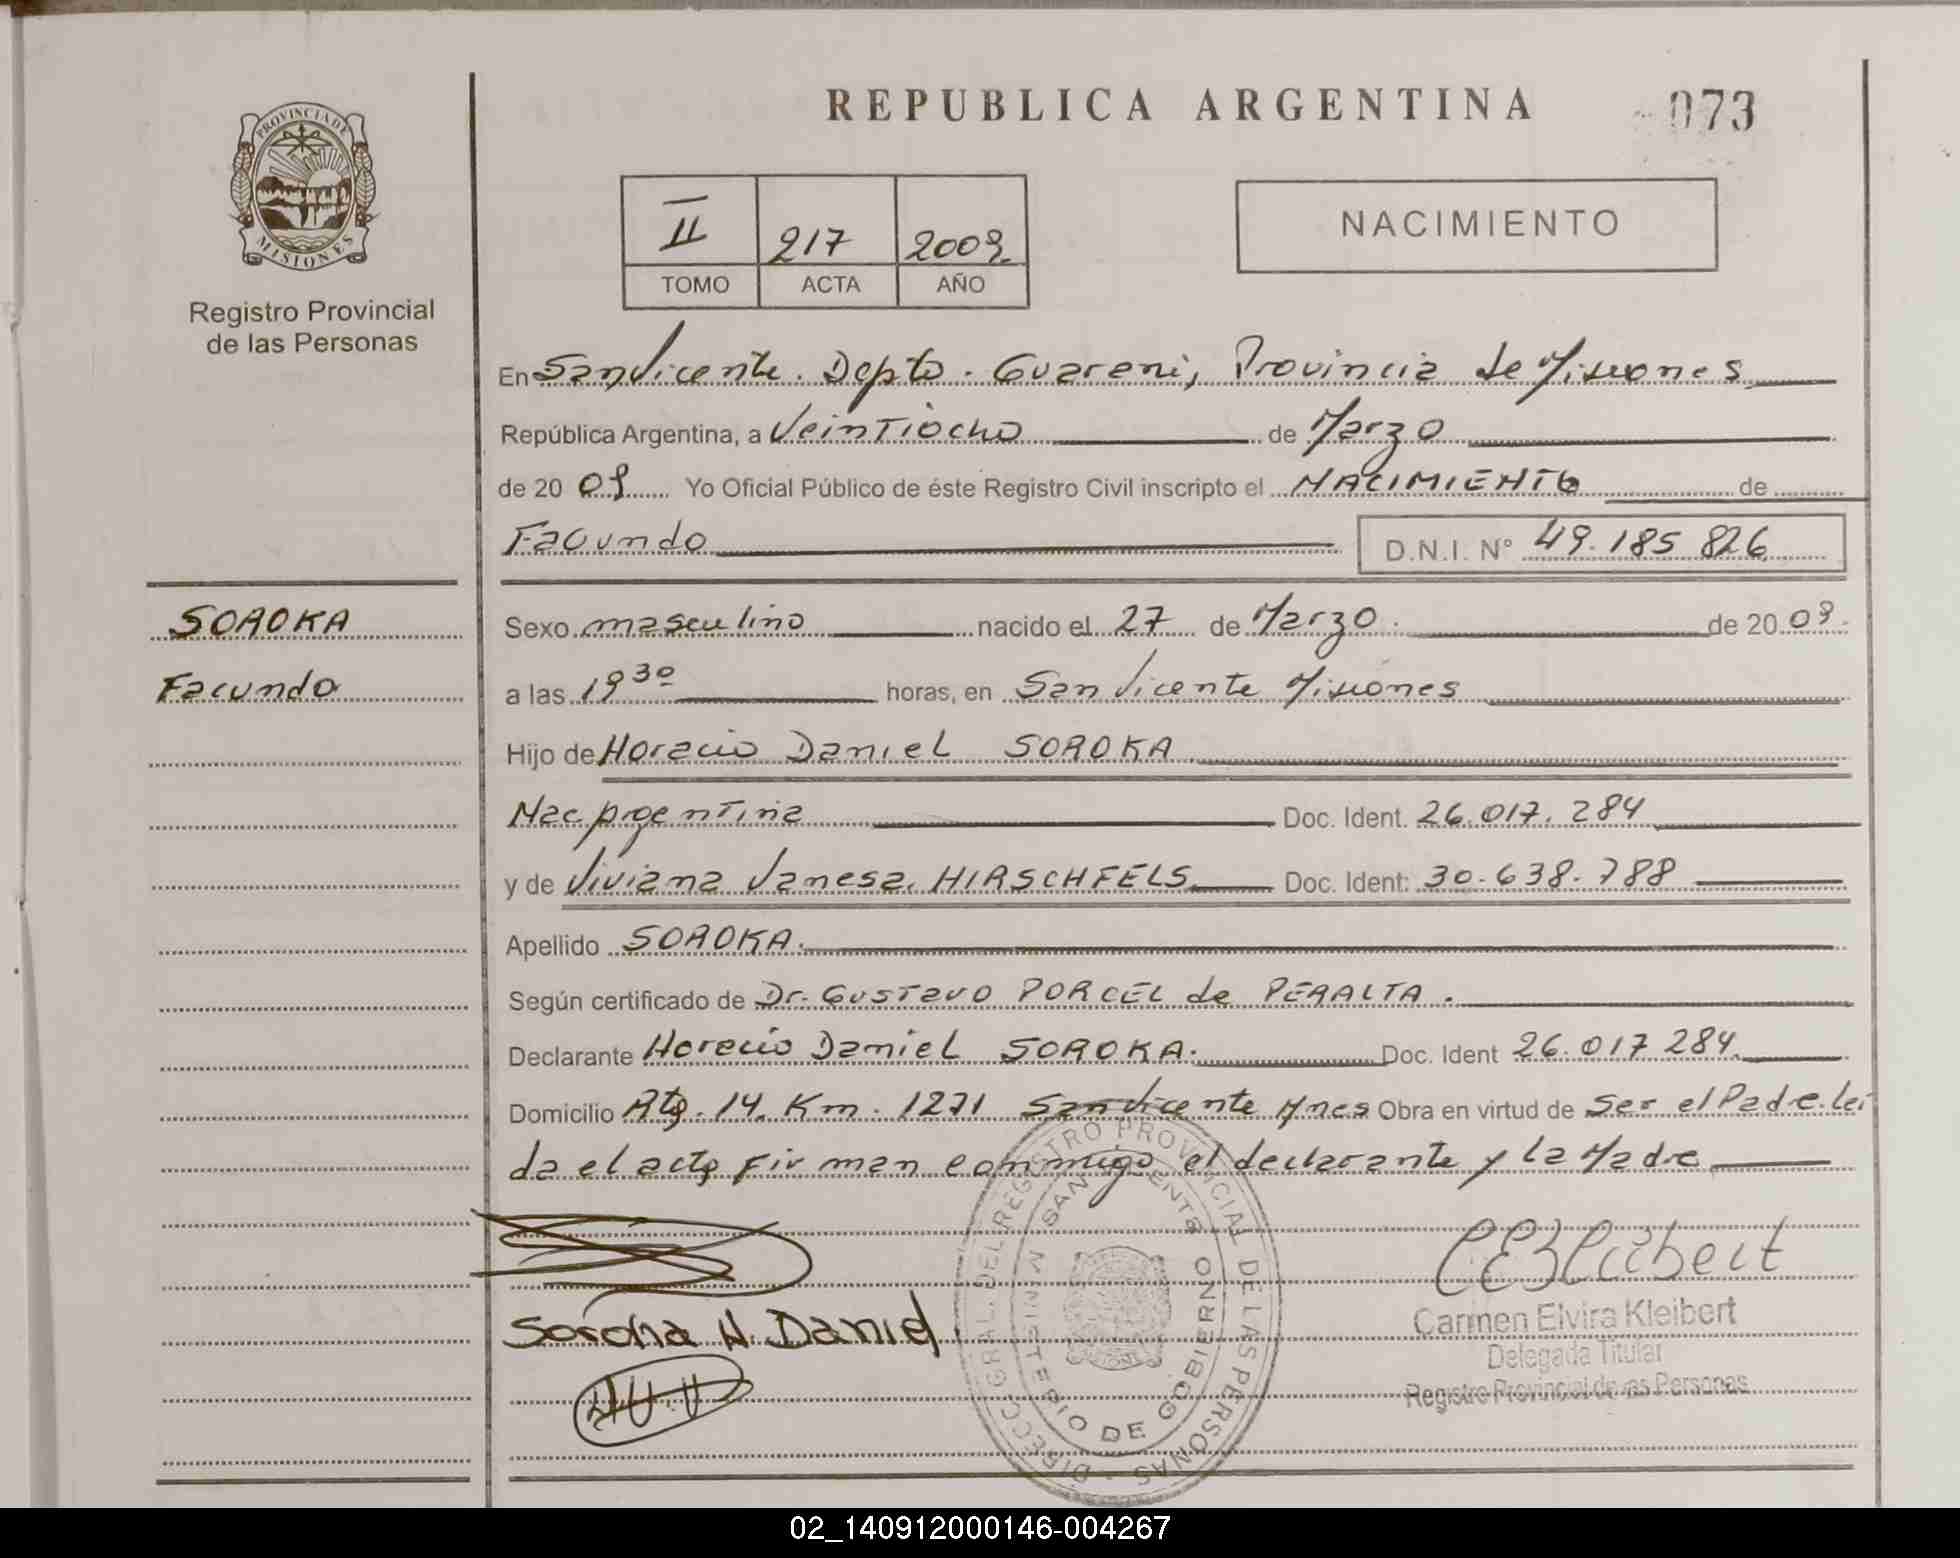 REPUBLICA ARGENTINA
073
PROVINCIA DE
MISIONES
Registro Provincial
de las Personas
II 217 2009
TOMO ACTA AÑO
NACIMIENTO
En San Vicente. Depto. Guarani, Provincia de Misiones
República Argentina, a Veintiocho de Marzo
de 20 09 Yo Oficial Público de éste Registro Civil inscripto el NACIMIENTO de
Facundo D.N.I. N° 49.185 826
SOROKA
Facundo
Sexo masculino nacido el 27 de Marzo de 20 09
a las 19 30 horas, en San Vicente Misiones
Hijo de Horacio Daniel SOROKA
Nac Argentina Doc. Ident. 26.017.284
y de Viviana Vanesa HIRSCHFELS Doc. Ident: 30.638.788
Apellido SOROKA.
Según certificado de Dr. Gustavo PORCEL de PERALTA.
Declarante Horacio Daniel SOROKA. Doc. Ident 26.017 284
Domicilio Rta. 14. Km. 1271 San Vicente Mnes Obra en virtud de Ser el Padre. lei
da el acta firman conmigo el declarante y la Madre
Soroka H. Daniel
DIRECC. GRAL. DEL REGISTRO PROVINCIAL DE LAS PERSONAS
SAN VICENTE
MINISTERIO DE GOBIERNO
Carmen Elvira Kleibert
Delegada Titular
Registro Provincial de las Personas
02_140912000146-004267